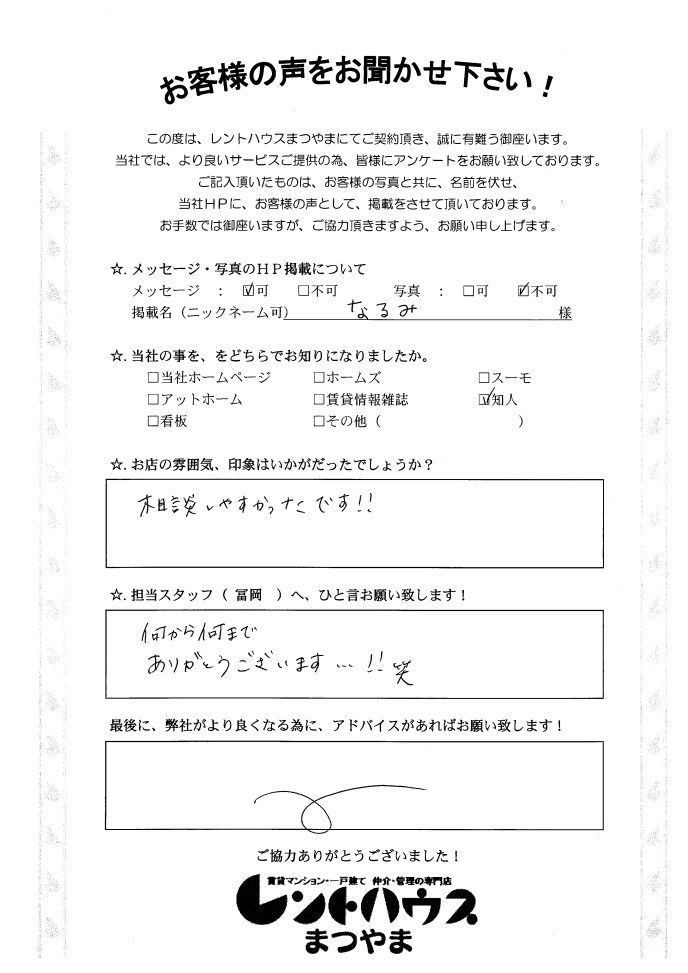 お客様の声をお聞かせ下さい！
この度は、レントハウスまつやまにてご契約頂き、誠に有難う御座います。
当社では、より良いサービスご提供の為、皆様にアンケートをお願い致しております。
ご記入頂いたものは、お客様の写真と共に、名前を伏せ、
当社ＨＰに、お客様の声として、掲載をさせて頂いております。
お手数では御座いますが、ご協力頂きますよう、お願い申し上げます。
☆. メッセージ・写真のＨＰ掲載について
メッセージ ： ☑可 □不可 写真 ： □可 ☑不可
掲載名（ニックネーム可） なるみ 様
☆. 当社の事を、をどちらでお知りになりましたか。
□当社ホームページ □ホームズ □スーモ
□アットホーム □賃貸情報雑誌 ☑知人
□看板 □その他（ ）
☆. お店の雰囲気、印象はいかがだったでしょうか？
相談しやすかったです!!
☆. 担当スタッフ（ 冨岡 ）へ、ひと言お願い致します！
何から何まで
ありがとうございます…!!笑
最後に、弊社がより良くなる為に、アドバイスがあればお願い致します！
ご協力ありがとうございました！
賃貸マンション・一戸建て 仲介・管理の専門店
レントハウス
まつやま